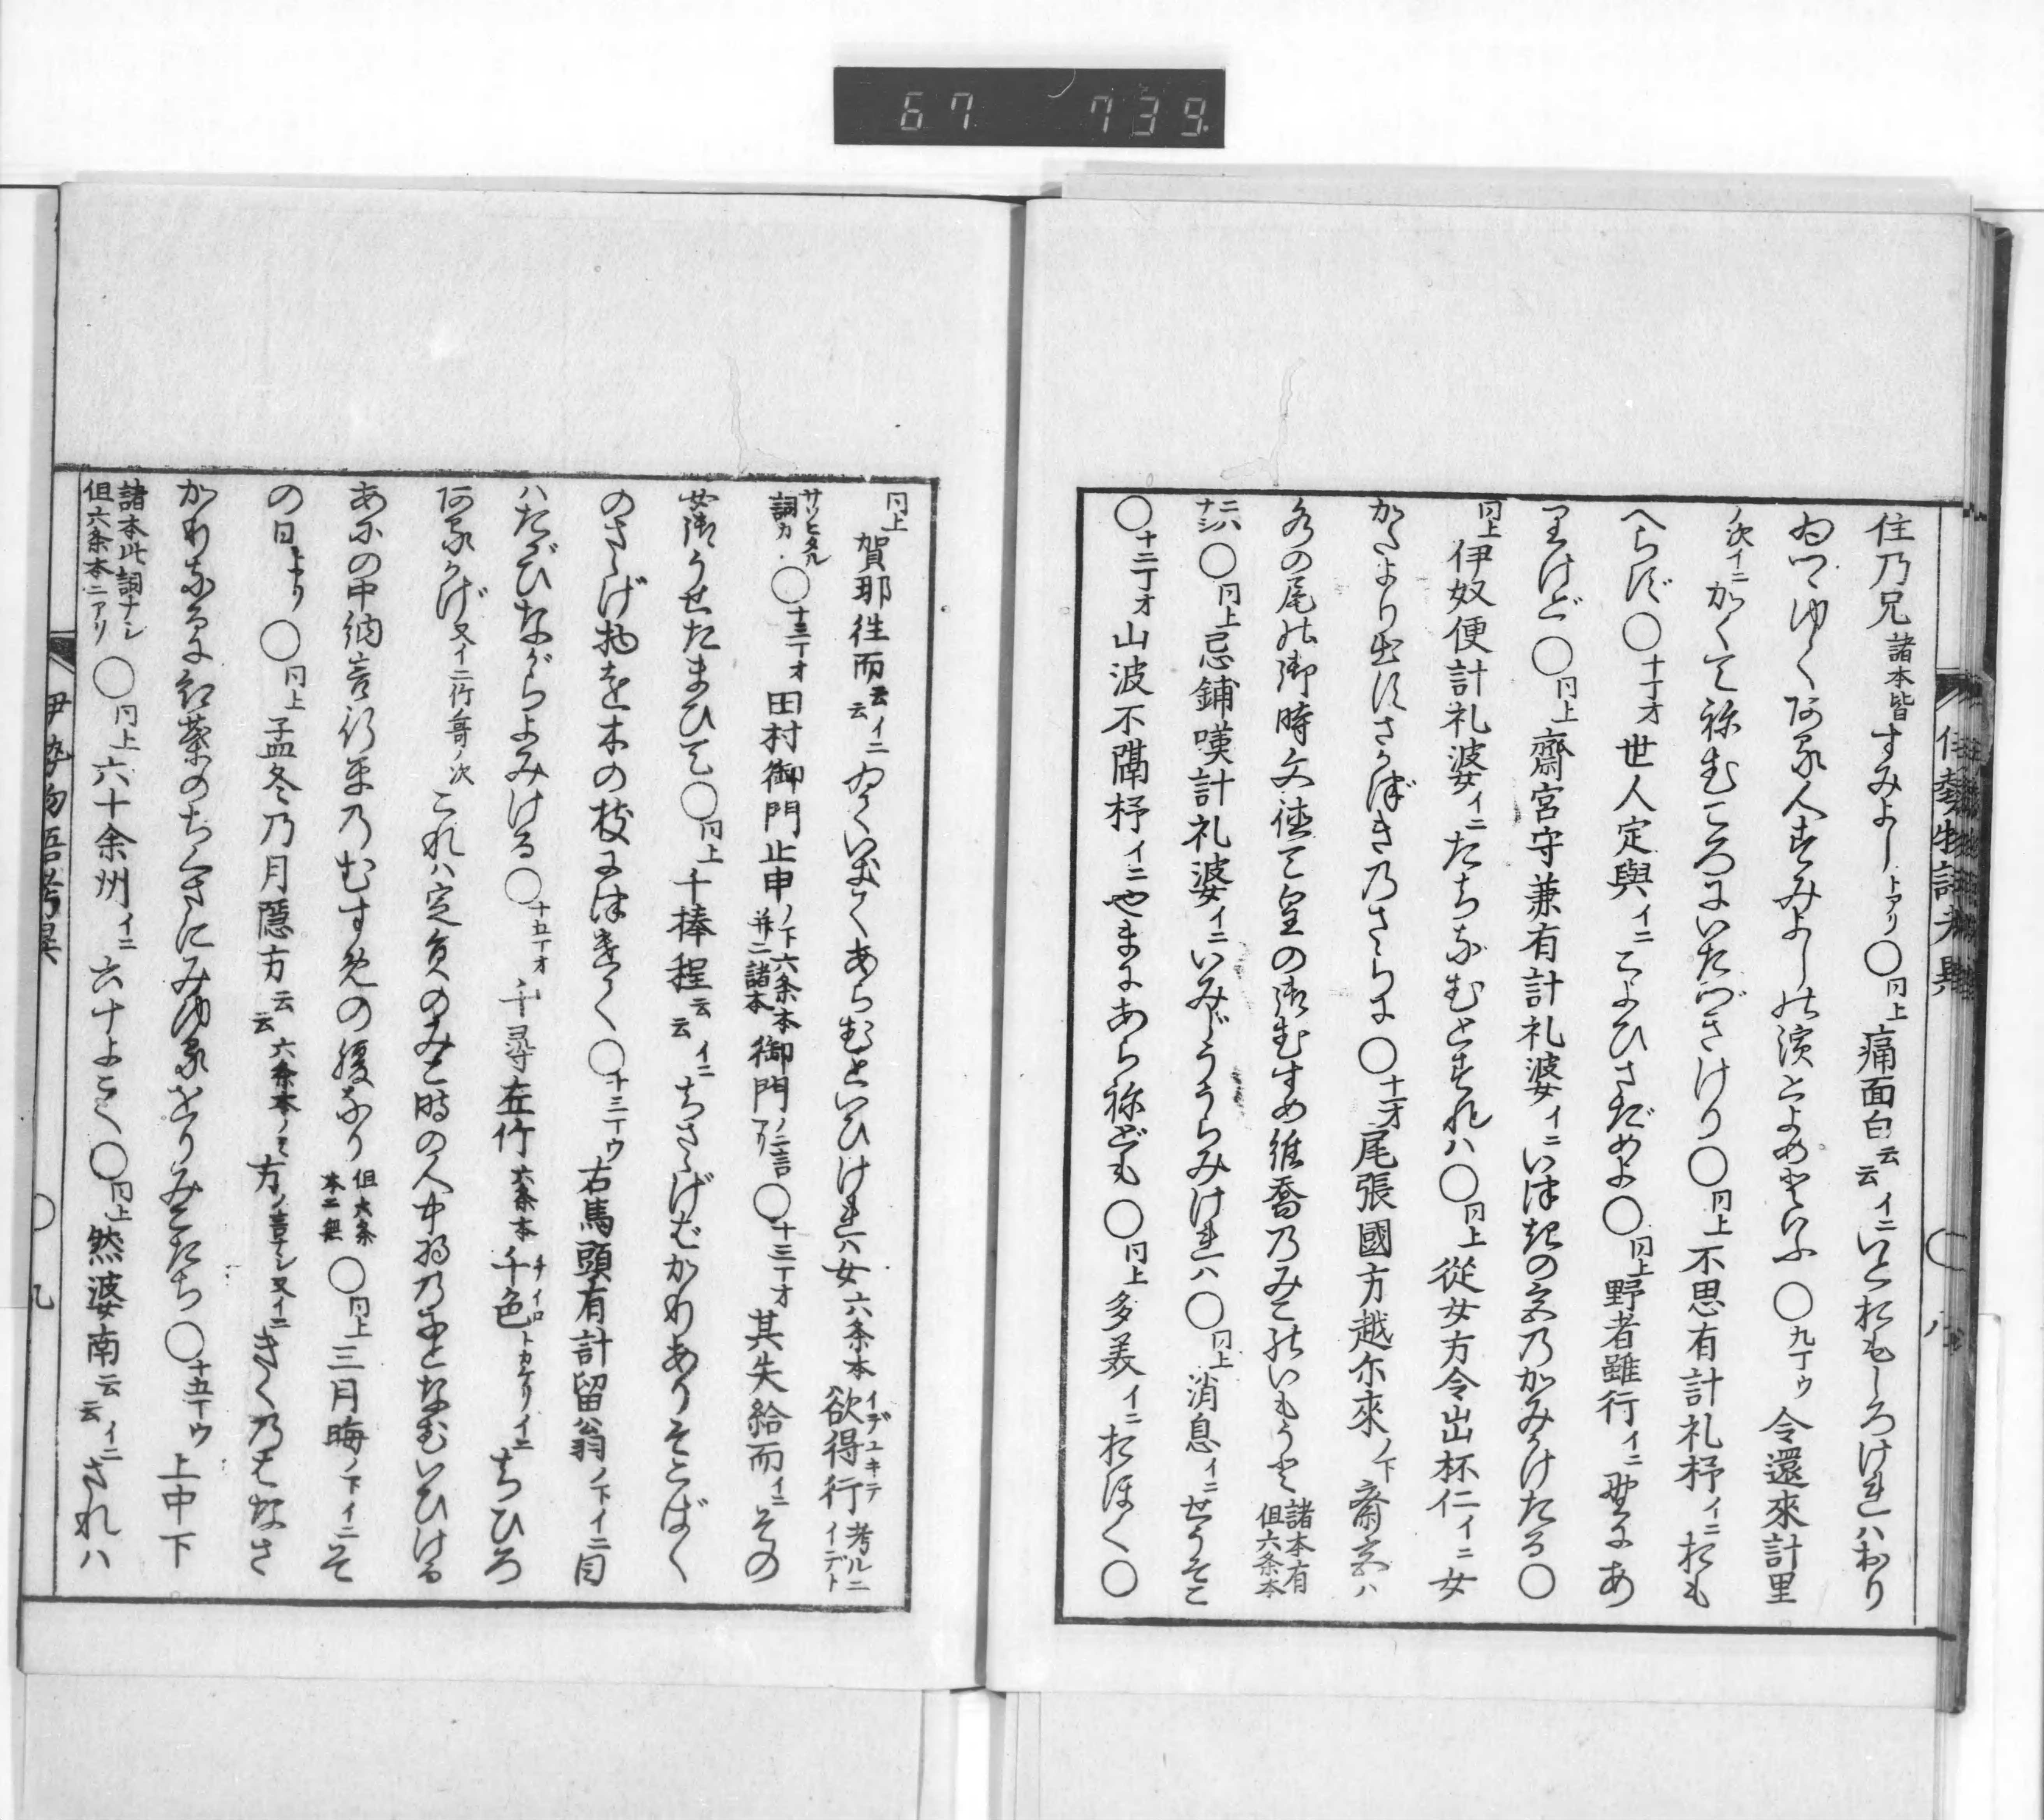 67 739
住乃兄諸本皆すみよしトアリ〇同上痛面白云云イニいとおもしろけれハおり
ゐつゝゆくある人すみよしの濱とよめといふ〇九丁ウ令還來計里
ノ次イニかくてねむころにいたづきけり〇同上不思有計礼杼イニおも
へらず〇十丁オ世人定與イニこよひさだめよ〇同上野者雖行イニ野にあ
りけど〇同上齋宮守兼有計礼婆イニいつきの宮乃かみかけたる〇
同上伊奴便計礼婆イニたちなむとすれハ〇同上從女方令出杯仁イニ女
かたより出すさかづき乃さらに〇十一オ尾張國方越尓來ノ下齋宮ハ
水の尾の御時文徳天皇の御むすめ維喬乃みこのいもうと諸本有但六条本
ニハナシ〇同上忌鋪嘆計礼婆イニいみじううらみけれハ〇同上消息イニせうそこ
〇十二丁オ山波不隔杼イニやまにあらねども〇同上多美イニおほく〇
伊勢物語考異 八
同上賀耶徃而云云イニゐていきてあらむといひけれハ女六条本欲得行イデユキテ考ルニイデト
サソヒタル詞カ〇十三丁オ田村御門止申ノ下六条本并ニ諸本御門ノ二言アリ〇十三丁オ其失給而イニその
女御うせたまひて〇同上千棒程云云イニちさゝげばかりありそこばく
のさゝげ物を木の枝につけて〇十三丁ウ右馬頭有計留翁ノ下イニ目
ハたがひながらよみける〇十五丁オ千尋在竹六条本千色チイロトカケリイニちひろ
あるかげ又イニ竹哥ノ次これハ定貞のみこ時の人中将乃子となむいひける
あにの中納言行平乃むすめの腹なり但六条本ニ無〇同上三月晦ノ下イニそ
の日より〇同上孟冬乃月隠方云云六条本ノミ方ノ言ナシ又イニきく乃はなさ
かりなるに紅葉のちくさにみゆるをりみこたち〇十五丁ウ上中下
諸本此詞ナシ但六条本ニアリ〇同上六十余州イニ六十よこく〇同上然婆南云云イニされハ
伊勢物語考異 九